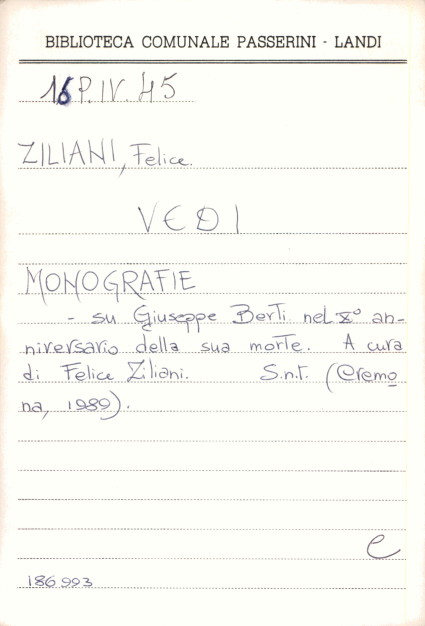 BIBLIOTECA COMUNALE PASSERINI - LANDI
16 P. IV. 45
ZILIANI, Felice.
VEDI
MONOGRAFIE
- su Giuseppe Berti nel X° an-
niversario della sua morte. A cura
di Felice Ziliani. S.n.t. (Cremo
na, 1989).
e
186993